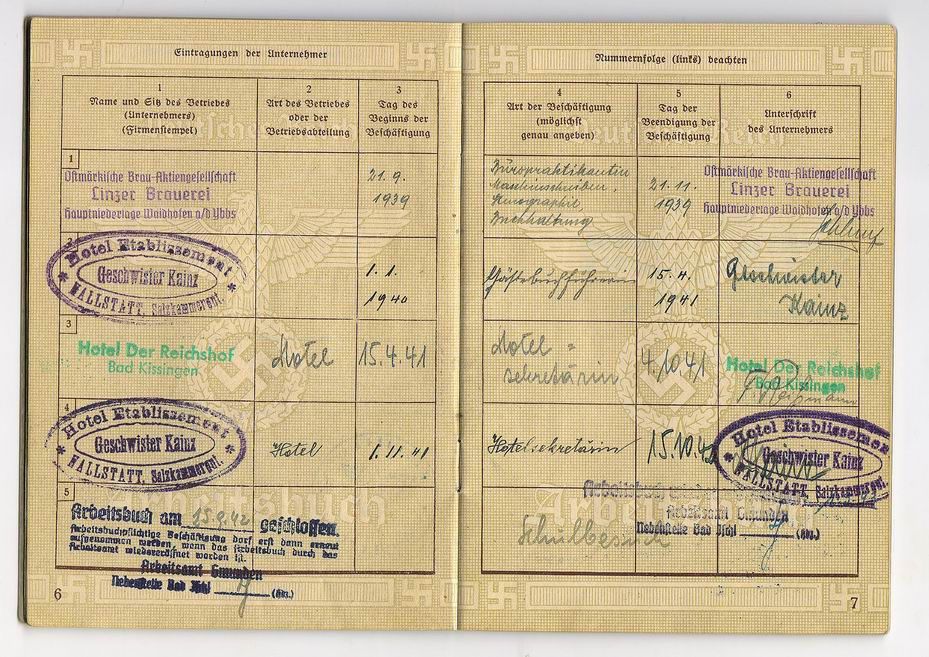 Eintragungen der Unternehmer
1
Name und Sitz des Betriebes
(Unternehmers)
(Firmenstempel)
2
Art des Betriebes
oder der
Betriebsabteilung
3
Tag des
Beginns der
Beschäftigung
1
Ostmärkische Brau-Aktiengesellschaft
Linzer Brauerei
Hauptniederlage Waidhofen a/d Ybbs
21.9.
1939
Hotel Etablissement
Geschwister Kainz
HALLSTATT, Salzkammergut.
1.1.
1940
3
Hotel Der Reichshof
Bad Kissingen
Hotel
15.4.41
4
Hotel Etablissement
Geschwister Kainz
HALLSTATT, Salzkammergut.
Hotel
1.11.41
5
Arbeitsbuch am 15.9.42 geschlossen.
Arbeitsbuchpflichtige Beschäftigung darf erst dann erneut
aufgenommen werden, wenn das Arbeitsbuch durch das
Arbeitsamt wiedereröffnet worden ist.
Arbeitsamt Gmunden
Nebenstelle Bad Ischl
6
Nummernfolge (links) beachten
4
Art der Beschäftigung
(möglichst
genau angeben)
5
Tag der
Beendigung der
Beschäftigung
6
Unterschrift
des Unternehmers
Büropraktikantin
Maschinschreiben,
Stenographie
Buchhaltung
21.11.
1939
Ostmärkische Brau-Aktiengesellschaft
Linzer Brauerei
Hauptniederlage Waidhofen a/d Ybbs
Gästebuchführerin
15.4.
1941
Geschwister
Kainz
Hotel =
sekretärin
4/10 41
Hotel Der Reichshof
Bad Kissingen
Hotelsekretärin
15.10.42
Hotel Etablissement
Geschwister Kainz
HALLSTATT, Salzkammergut.
Arbeitsbuch
Arbeitsamt Gmunden
Nebenstelle Bad Ischl
Schulbesuch
7